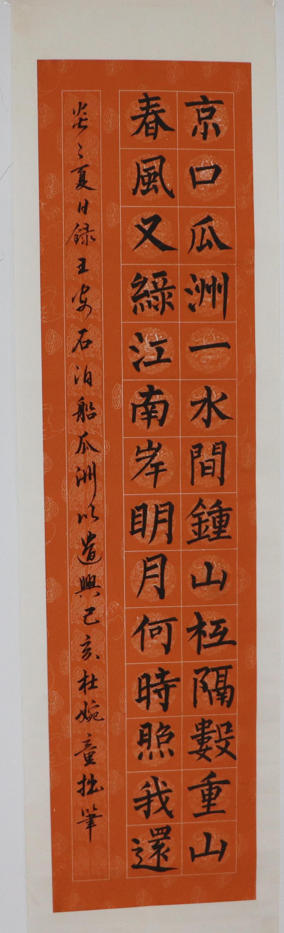 京口瓜洲一水間鍾山枑隔數重山
春風又綠江南岸明月何時照我還
炎々夏日錄王安石泊船瓜洲以遣興己亥杜婉童拙筆